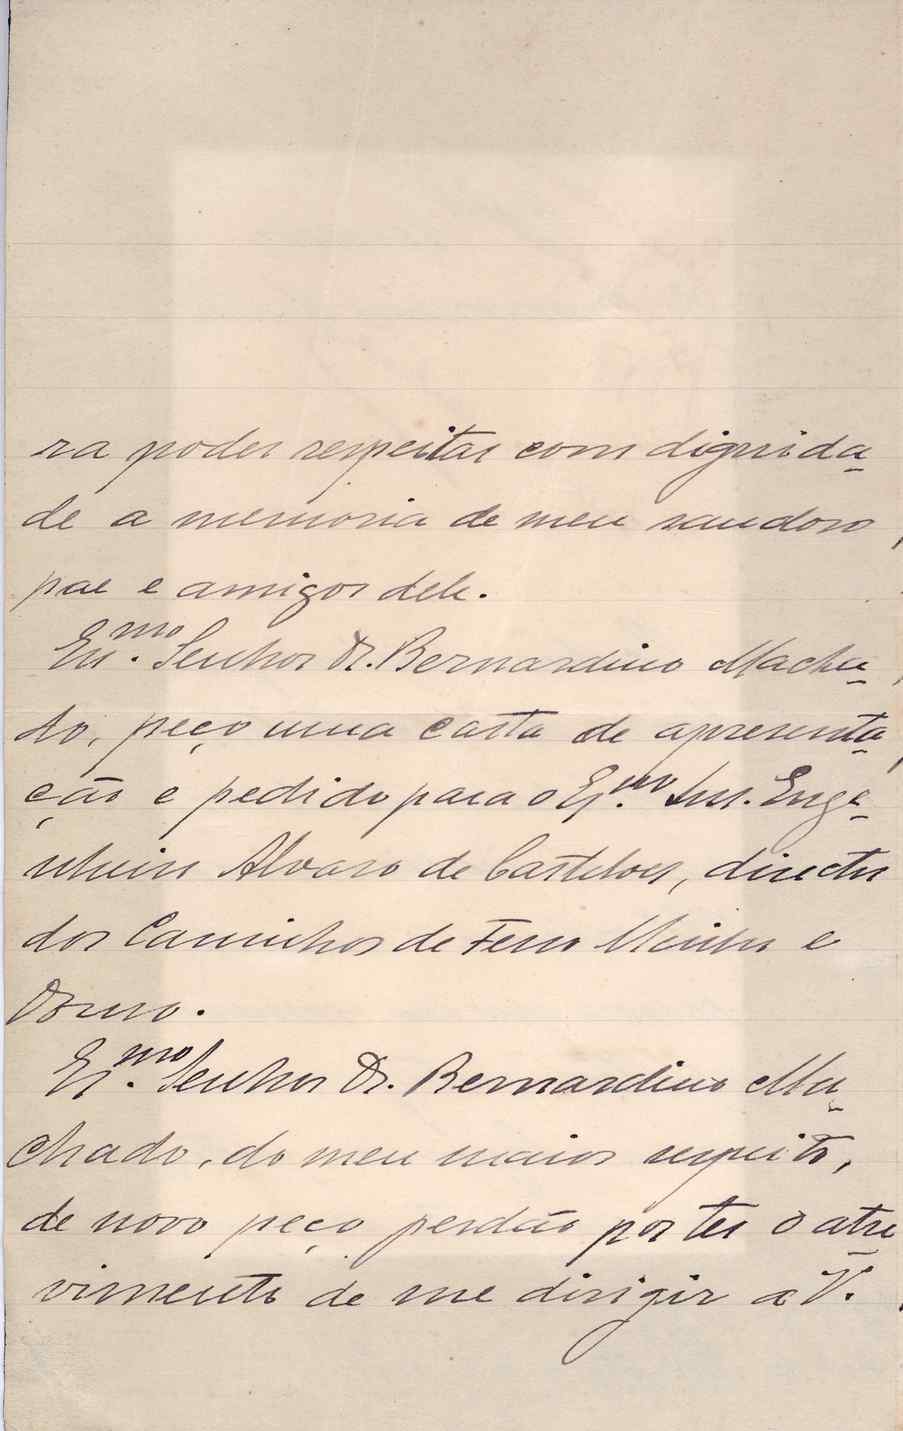 ra poder respeitar com dignida-
de a memoria de meu saudoso
pae e amigos dele.
Ex.mo Senhor Dr. Bernardino Macha-
do, peço uma carta de apresenta-
ção e pedido para o Ex.mo Snr. Enge-
nheiro Alvaro de Castelões, director
dos Caminhos de Ferro Minho e
Douro.
Ex.mo Senhor Dr. Bernardino Ma-
chado, do meu maior respeito,
de novo peço perdão por ter o atre-
vimento de me dirigir a V.